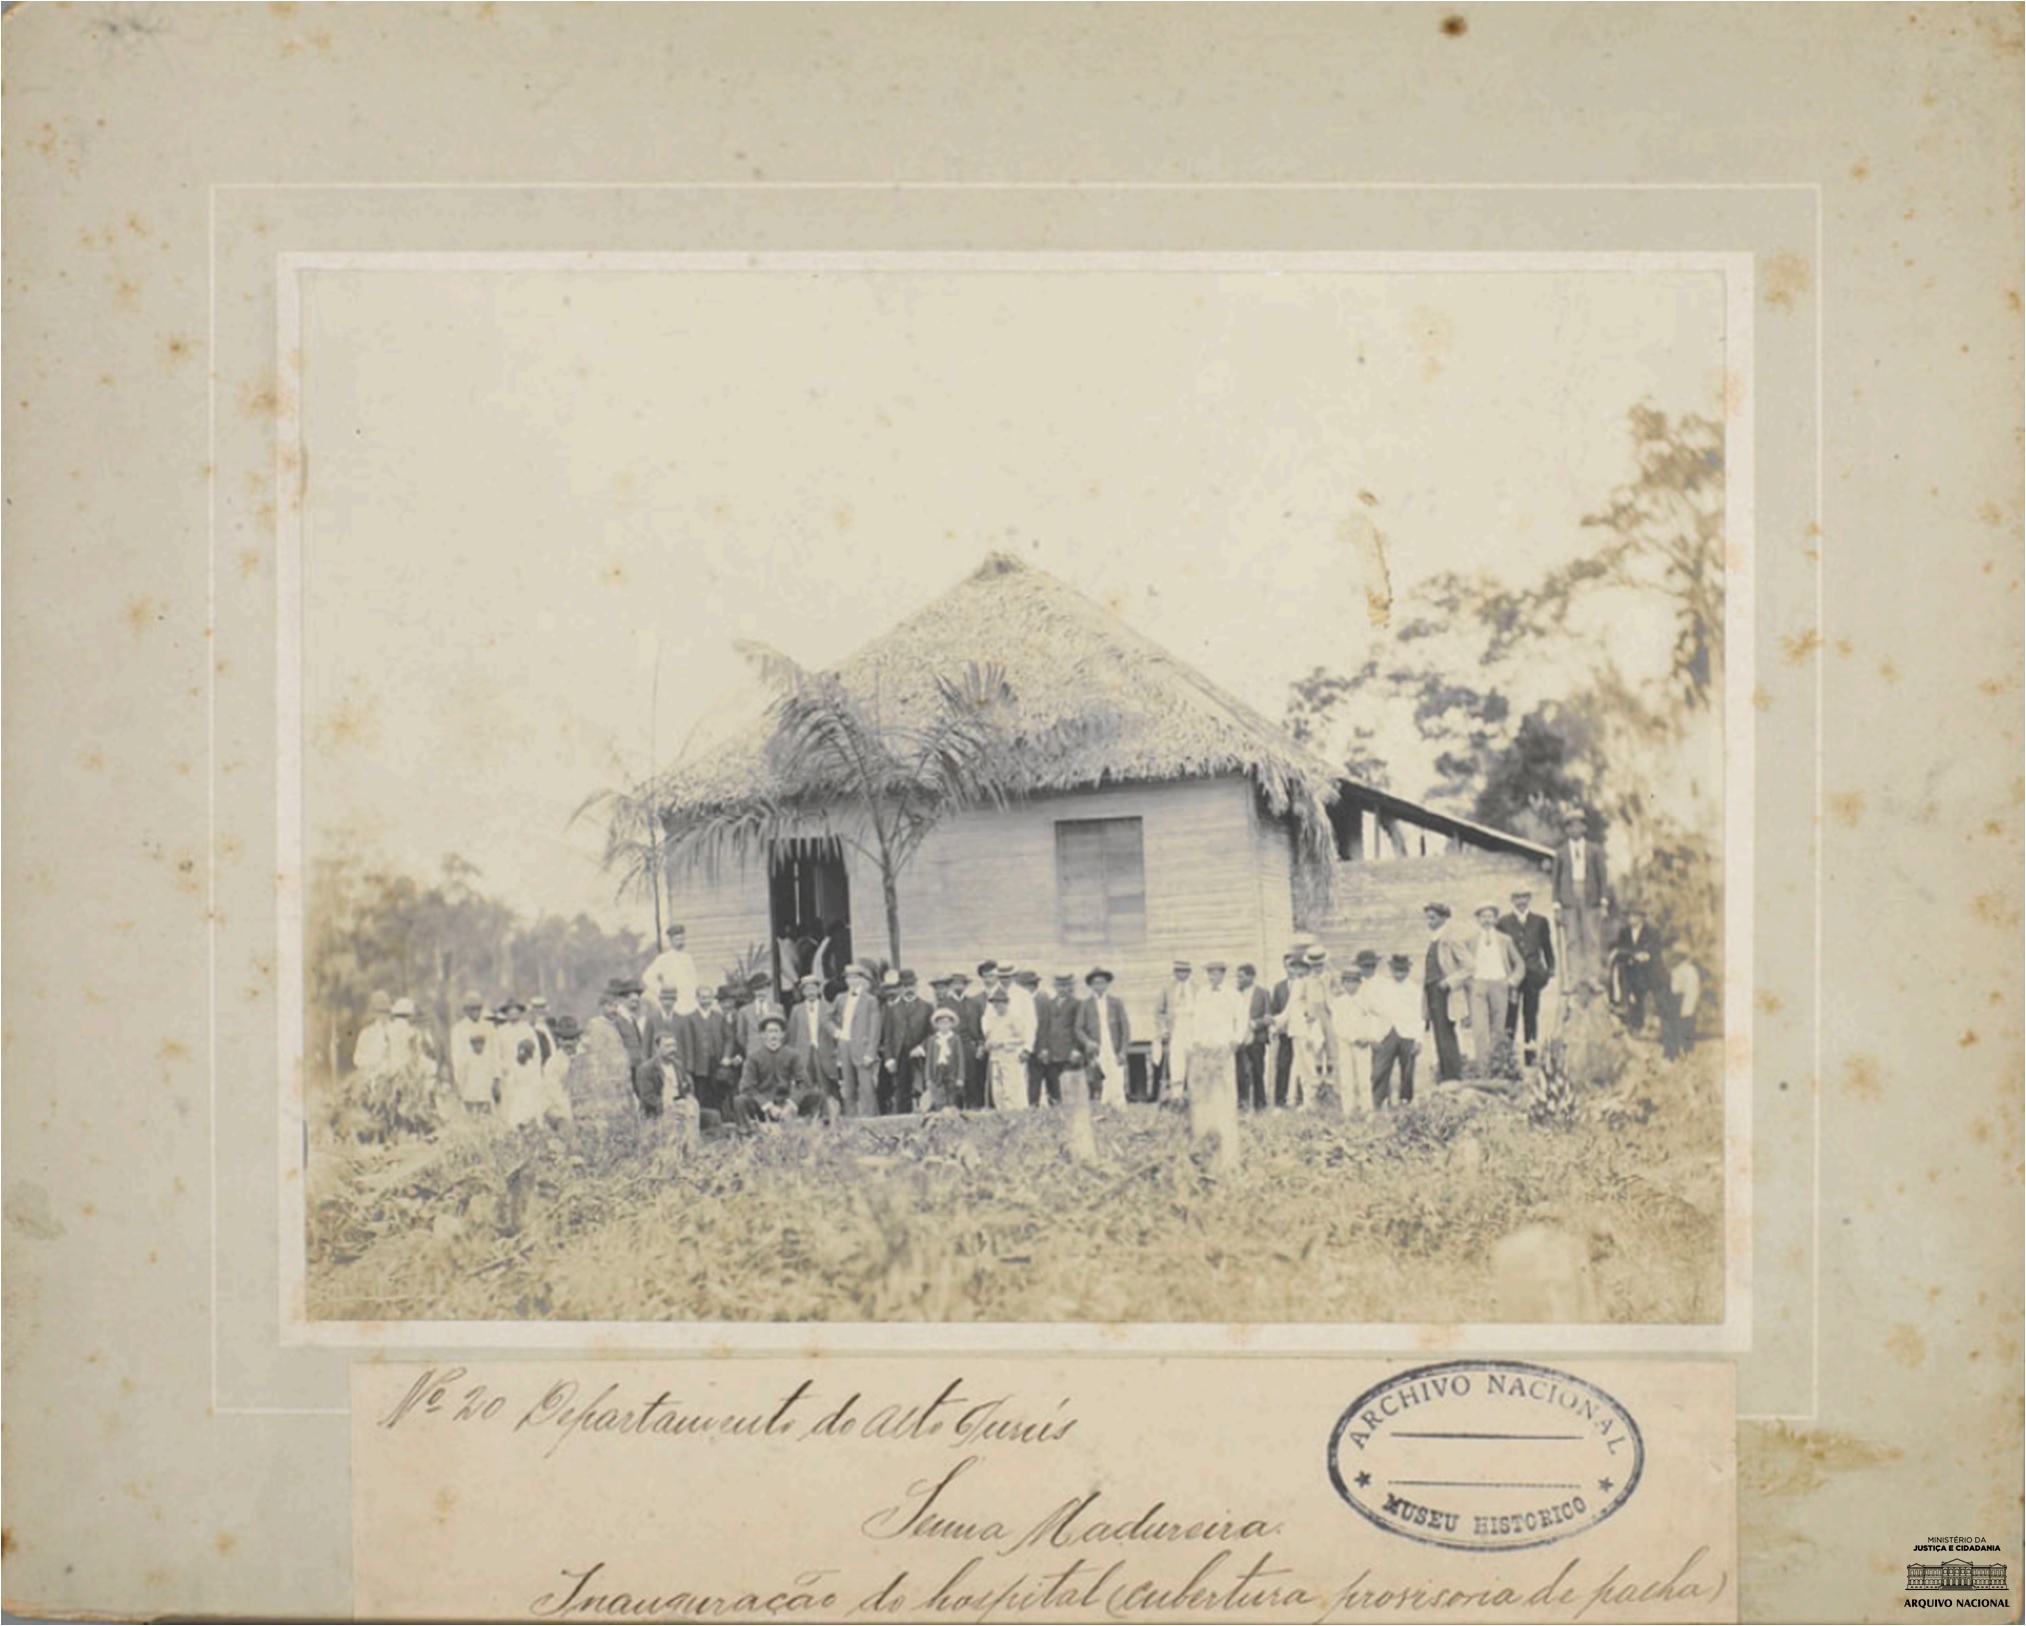 Nº 20 Departamento do Alto Purús
Senna Madureira.
Inauguração do hospital (cubertura provisoria de palha)
ARCHIVO NACIONAL
MUSEU HISTORICO
MINISTÉRIO DA
JUSTIÇA E CIDADANIA
ARQUIVO NACIONAL